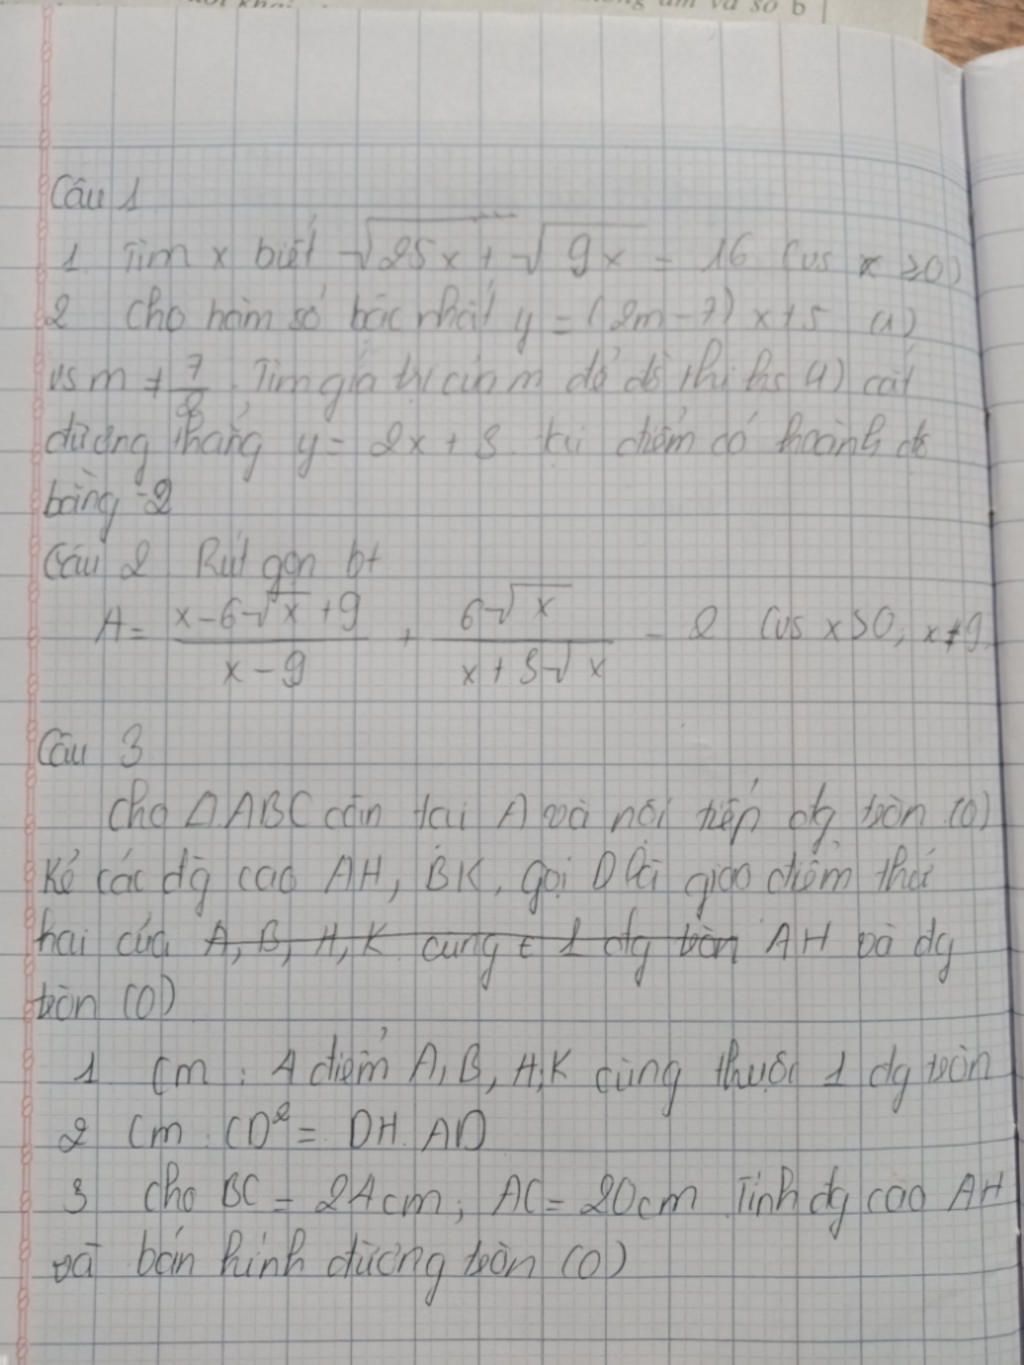 và số b
Câu 1
1 Tìm x biết √25x + √9x = 16 (vs x ≥0)
2 Cho hàm số bậc nhất y = (2m - 7) x + 5 (1)
vs m ≠ 7/2. Tìm giá trị của m để đồ thị hs (1) cắt
đường thẳng y = 2x + 3 tại điểm có hoành độ
bằng -2
Câu 2 Rút gọn bt
A = (x - 6√x + 9)/(x - 9) + 6√x/(x + 3√x) - 2 (vs x>0, x≠9
Câu 3
Cho △ABC cân tại A và nội tiếp đg tròn (O)
Kẻ các đg cao AH, BK, gọi D là giao điểm thứ
hai của A, B, H, K cùng ∈ 1 đg tròn AH và đg
tròn (O)
1 Cm : 4 điểm A, B, H, K cùng thuộc 1 đg tròn
2 Cm : CD² = DH. AD
3 Cho BC = 24cm; AC = 20cm Tính đg cao AH
và bán kính đường tròn (O)